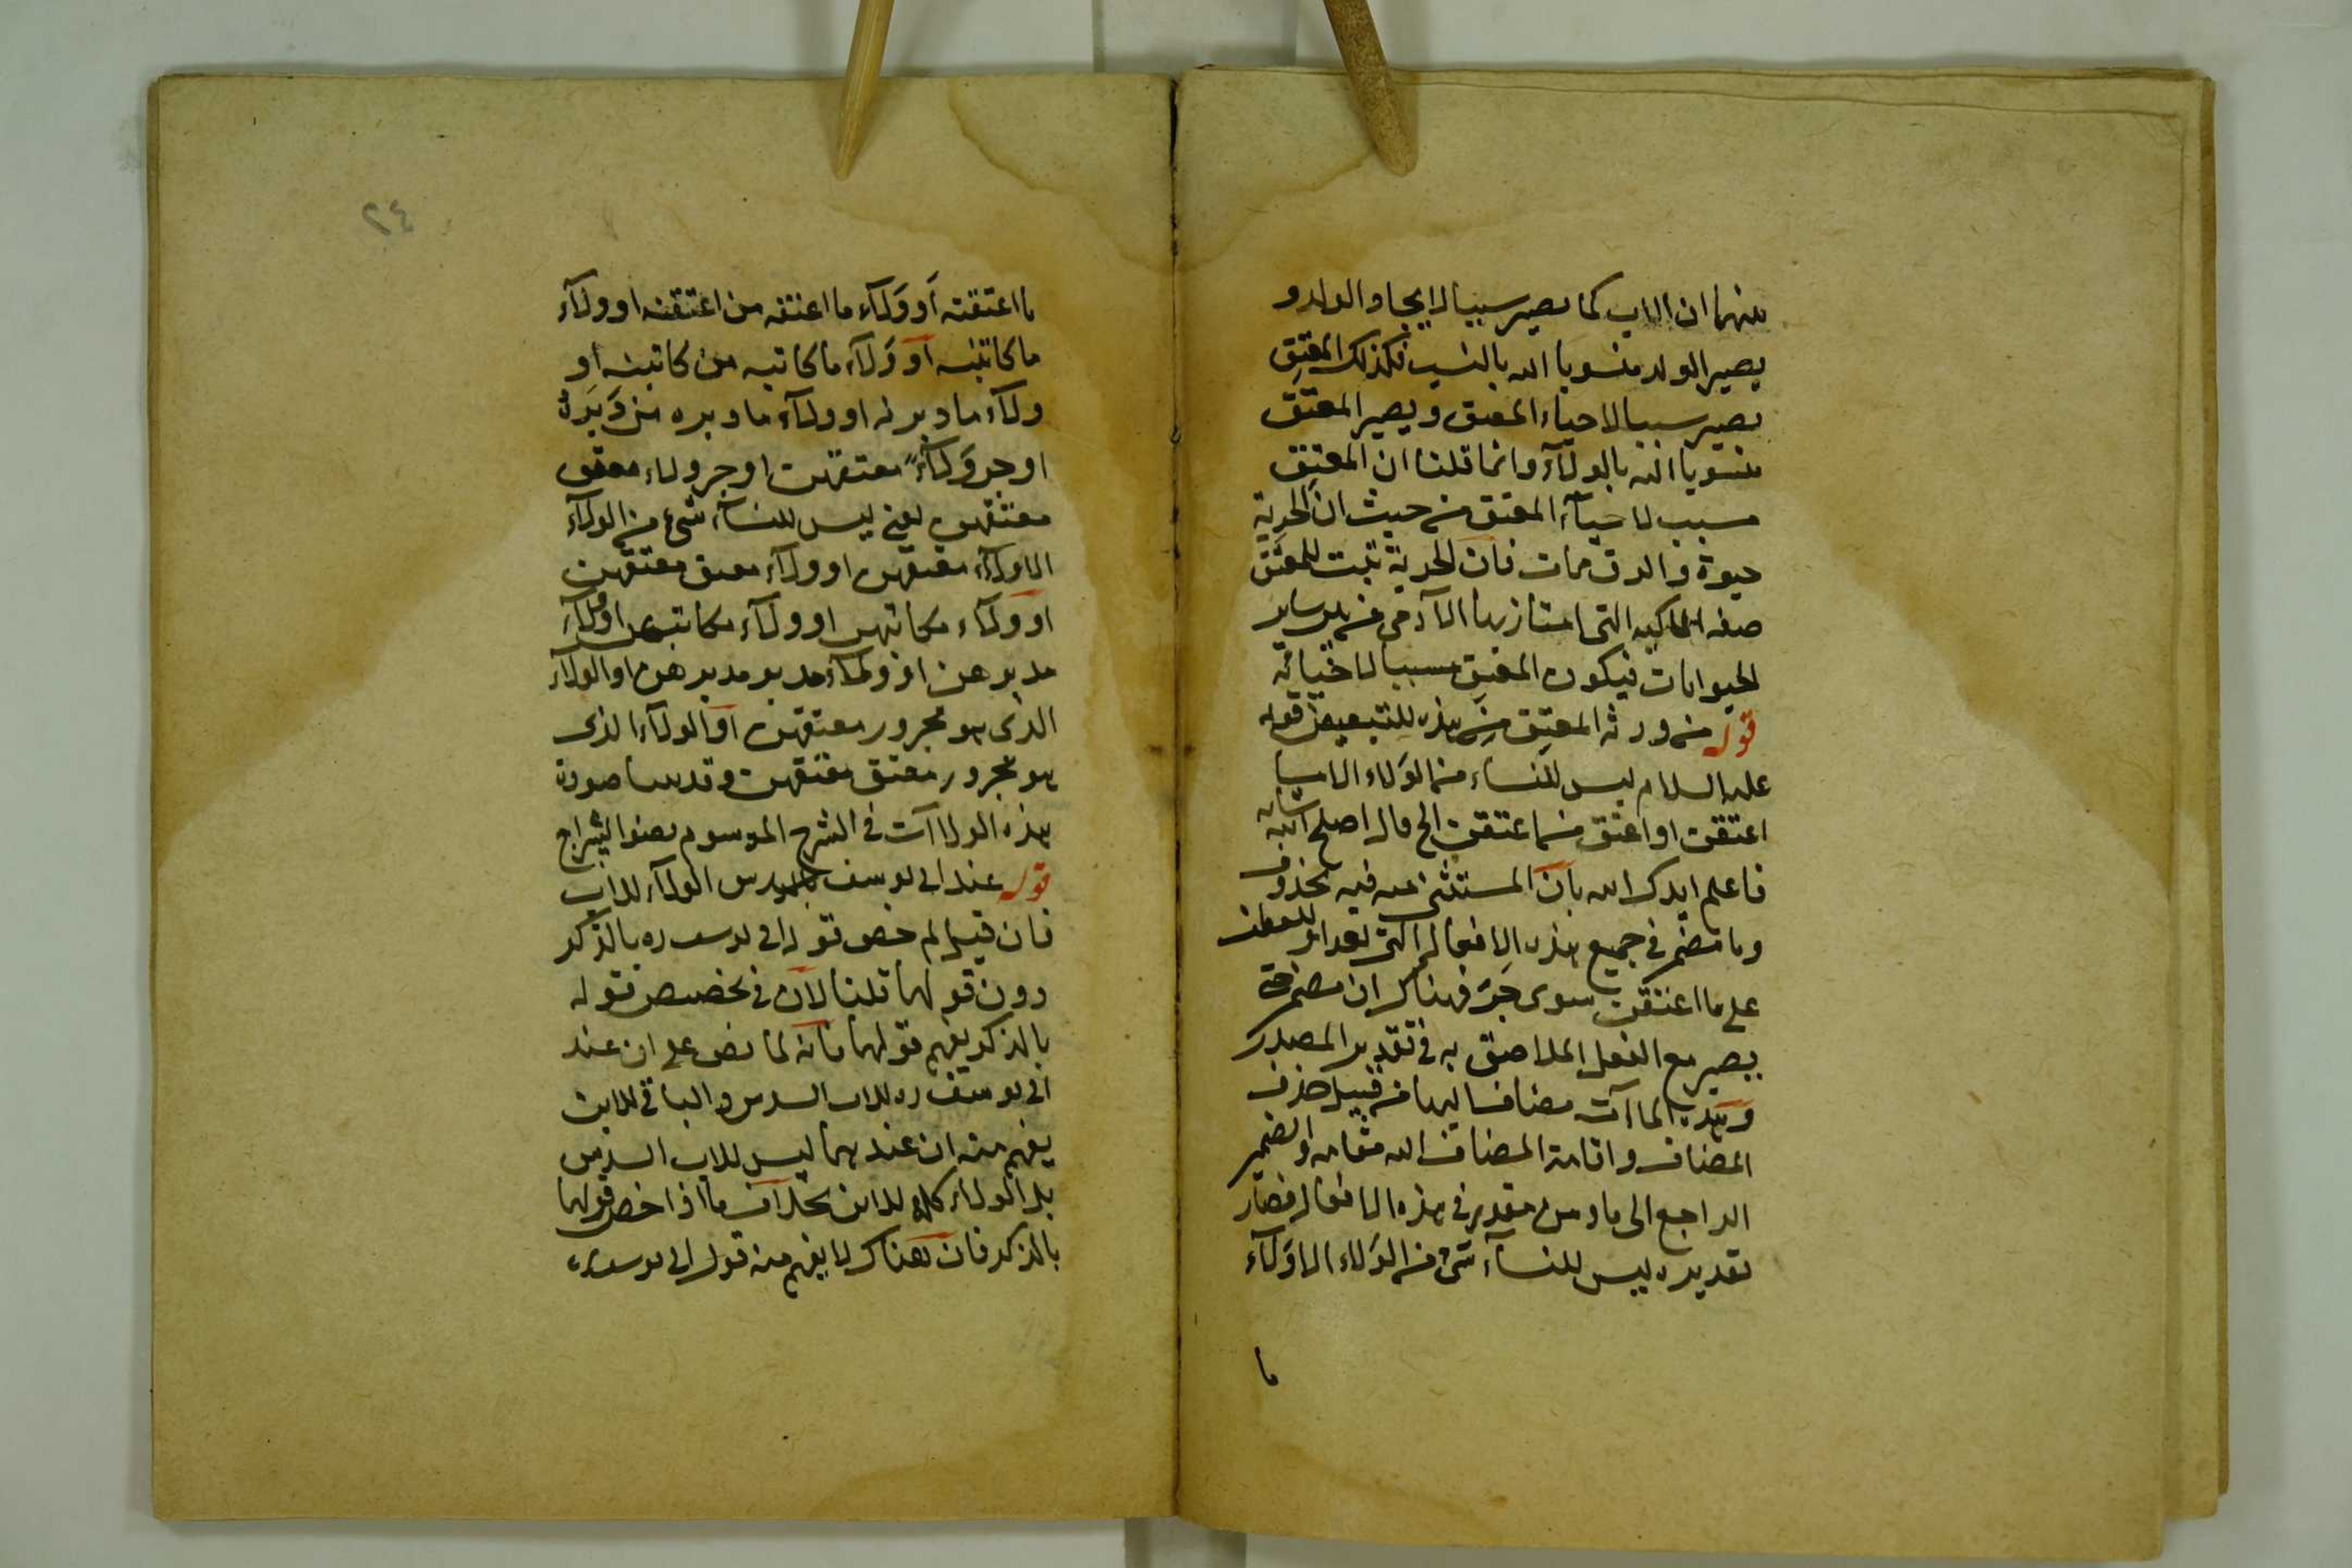 منهما ان الاب كما يصير سببا لايجاد الولد و
يصير الولد منسوبا اليه بالنسب فكذلك المعتِق
يصير سببا لاحياء المعتق ويصير المعتَق
منسوبا اليه بالولآء وانما قلنا ان المعتِق
سبب لاحيآء المعتق من حيث ان الحرية
حيوة والرق ممات فان الحرية تثبت للمعتَق
صفة المالكية التى امتاز بها الآدمى عن سائر
الحيوانات فيكون المعتِق سببا لاحيائه
قوله من ورثه المعتِق من هذه للتبعيض قوله
عليه السلام ليس للنساء من الولاء الا ما
اعتقن او اعتق من اعتقن الخ قال اصلح الله شانه
فاعلم ايدك الله بان المستثنى منه فيه محذوف
وما مضمر فى جميع هذه الافعال التى للعطف
على ما اعتقن سوى جرّ فهناك ان مضمرة حتى
يصير مع الفعل الملاصق به فى تقدير المصدر
وهذه الماآت مضافا اليها من قبيل حذف
المضاف واقامة المضاف اليه مقامه والضمير
الراجع الى ما ومن مقدر فى هذه الافعال فصار
تقديره ليس للنسآء شئ من الولاء الا ولآء
ما
٢٤
ما اعتقنه او ولآء ما اعتقه من اعتقنه او ولآء
ما كاتبنه او ولآء ما كاتبه من كاتبنه او
ولآء ما دبرنه او ولآء ما دبره من دَبَّرنه
او جر ولآء معتقهن او جر ولاء معتق
معتقهن يعنى ليس للنسآء شئ من الولآء
الا ولآء معتقهن او ولآء معتق معتقهن
او ولآء مكاتبهن او ولآء مكاتب مكاتبهن او ولآء
مدبرهن او ولآء مدبر مدبرهن او الولآء
الذى هو مجرور معتقهن او الولآء الذى
هو مجرور معتق معتقهن وقد صورة
هذه الولاآت فى الشرح الموسوم بضوء السراج
قوله عند ابى يوسف سدس الولآء للاب
فان قيل لم خص قول ابى يوسف ره بالذكر
دون قولهما قلنا لان فى تخصيص قوله
بالذكر يفهم قولهما فانه لما نص على ان عند
ابى يوسف ره للاب السدس والباقى للابن
يفهم منه ان عندهما ليس للاب السدس
بل الولاء كله للابن بخلاف ما اذا خص قولهما
بالذكر فان هناك لا يفهم منه قول ابى يوسف ره